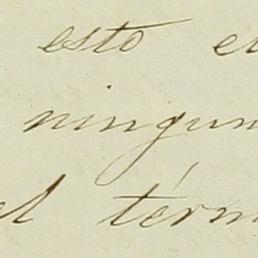 esto e
ningun
el térm